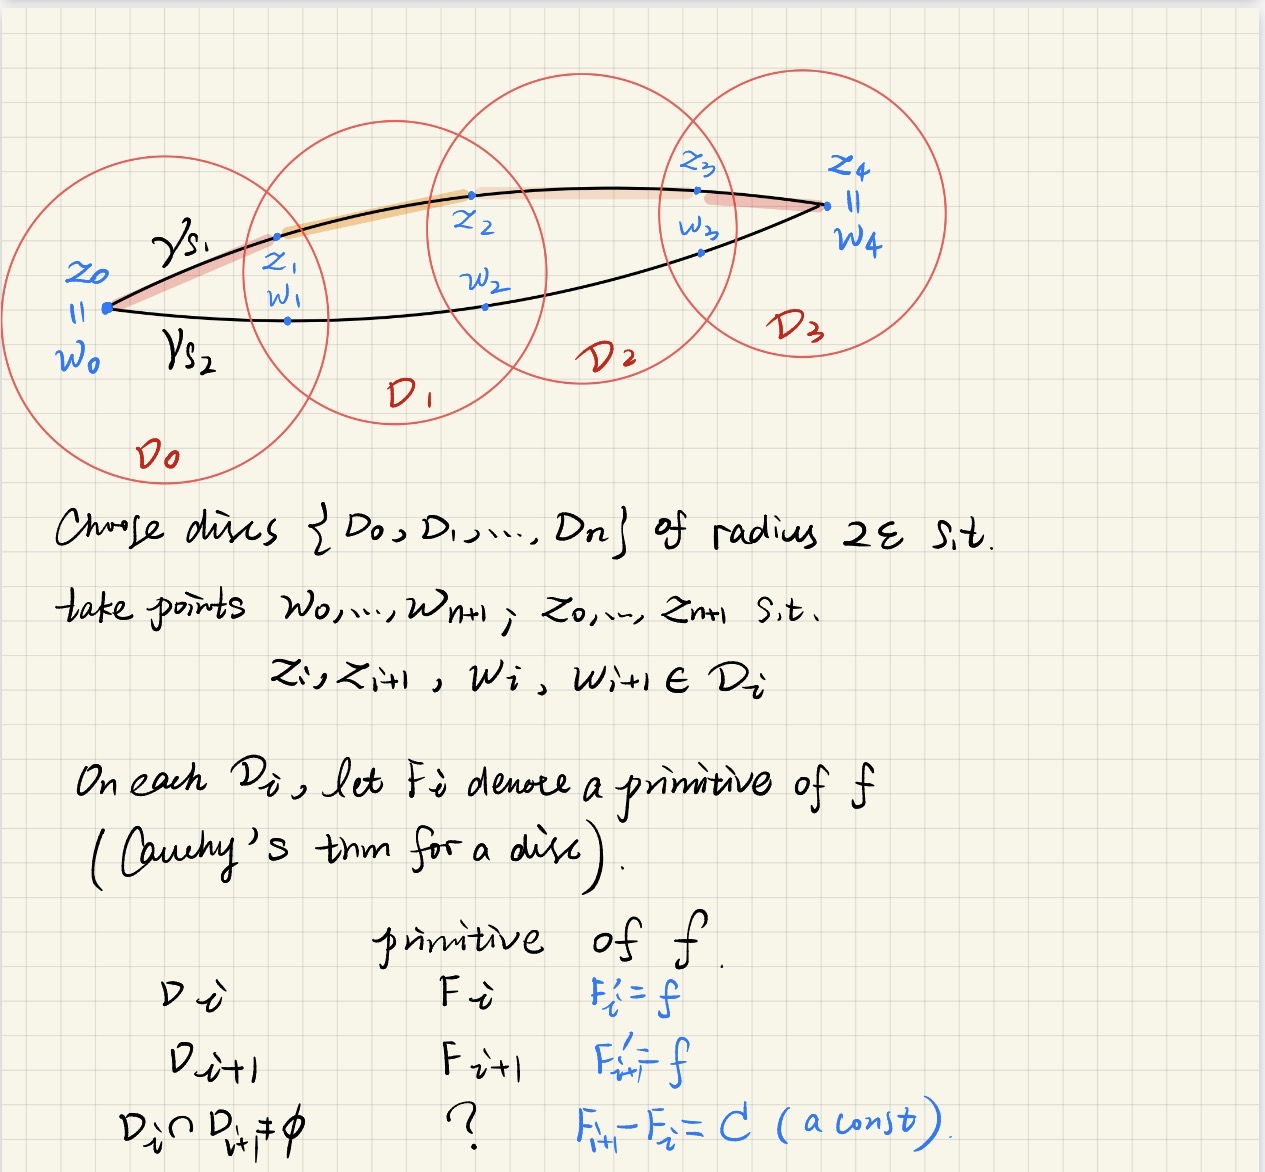 z₀
||
w₀
γs₁
γs₂
z₁
w₁
z₂
w₂
z₃
w₃
z₄
||
w₄
D₀
D₁
D₂
D₃
Choose discs {D₀, D₁, ..., Dₙ} of radius 2ε s.t.
take points w₀, ..., wₙ₊₁ ; z₀, ..., zₙ₊₁ s.t.
zᵢ, zᵢ₊₁ , wᵢ , wᵢ₊₁ ∈ Dᵢ
On each Dᵢ, let Fᵢ denote a primitive of f
(Cauchy's thm for a disc).
primitive of f.
Dᵢ Fᵢ Fᵢ′ = f
Dᵢ₊₁ Fᵢ₊₁ Fᵢ₊₁′ = f
Dᵢ ∩ Dᵢ₊₁ ≠ ϕ ? Fᵢ₊₁ − Fᵢ = C (a const).